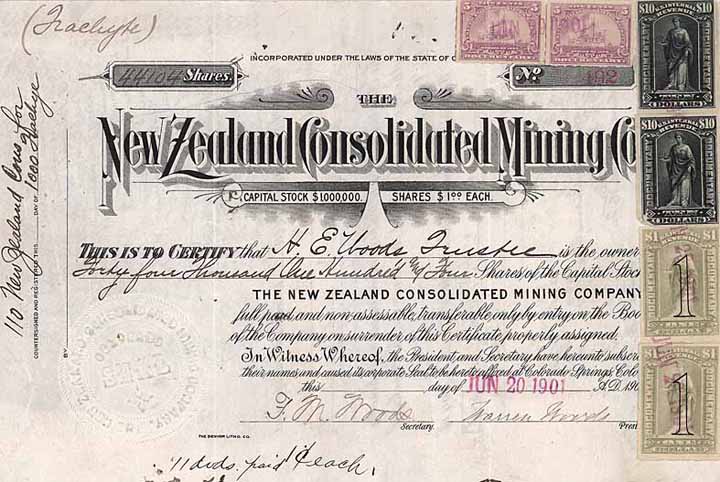 (Trachyte)
INCORPORATED UNDER THE LAWS OF THE STATE OF C
44104 Shares.
No. 192
THE
New Zealand Consolidated Mining Co
CAPITAL STOCK $1000,000. SHARES $1.00 EACH.
THIS IS TO CERTIFY that H. E. Woods Trustee is the owner
Forty four Thousand One Hundred and Four Shares of the Capital Stock
THE NEW ZEALAND CONSOLIDATED MINING COMPANY
full paid and non-assessable, transferable only by entry on the Boo
of the Company on surrender of this Certificate properly assigned.
In Witness Whereof, the President and Secretary have hereunto subscri
their names and caused its corporate Seal to be hereto affixed at Colorado Springs, Colo
this day of JUN 20 1901 A.D. 190
F. M. Woods Warren Woods
Secretary. Presi
THE DENVER LITHO. CO.
11 divds. paid 1¢ each.
110 New Zealand Cons for
1000 Trachyte
COUNTERSIGNED AND REGISTERED THIS DAY OF
BY
5 5
DOCUMENTARY DOCUMENTARY
$10 U.S. INTERNAL REVENUE $10
DOCUMENTARY DOCUMENTARY
TEN
DOLLARS
$10 U.S. INTERNAL REVENUE $10
DOCUMENTARY DOCUMENTARY
TEN
DOLLARS
$1 $1
DOCUMENTARY
1
$1 $1
DOCUMENTARY
1